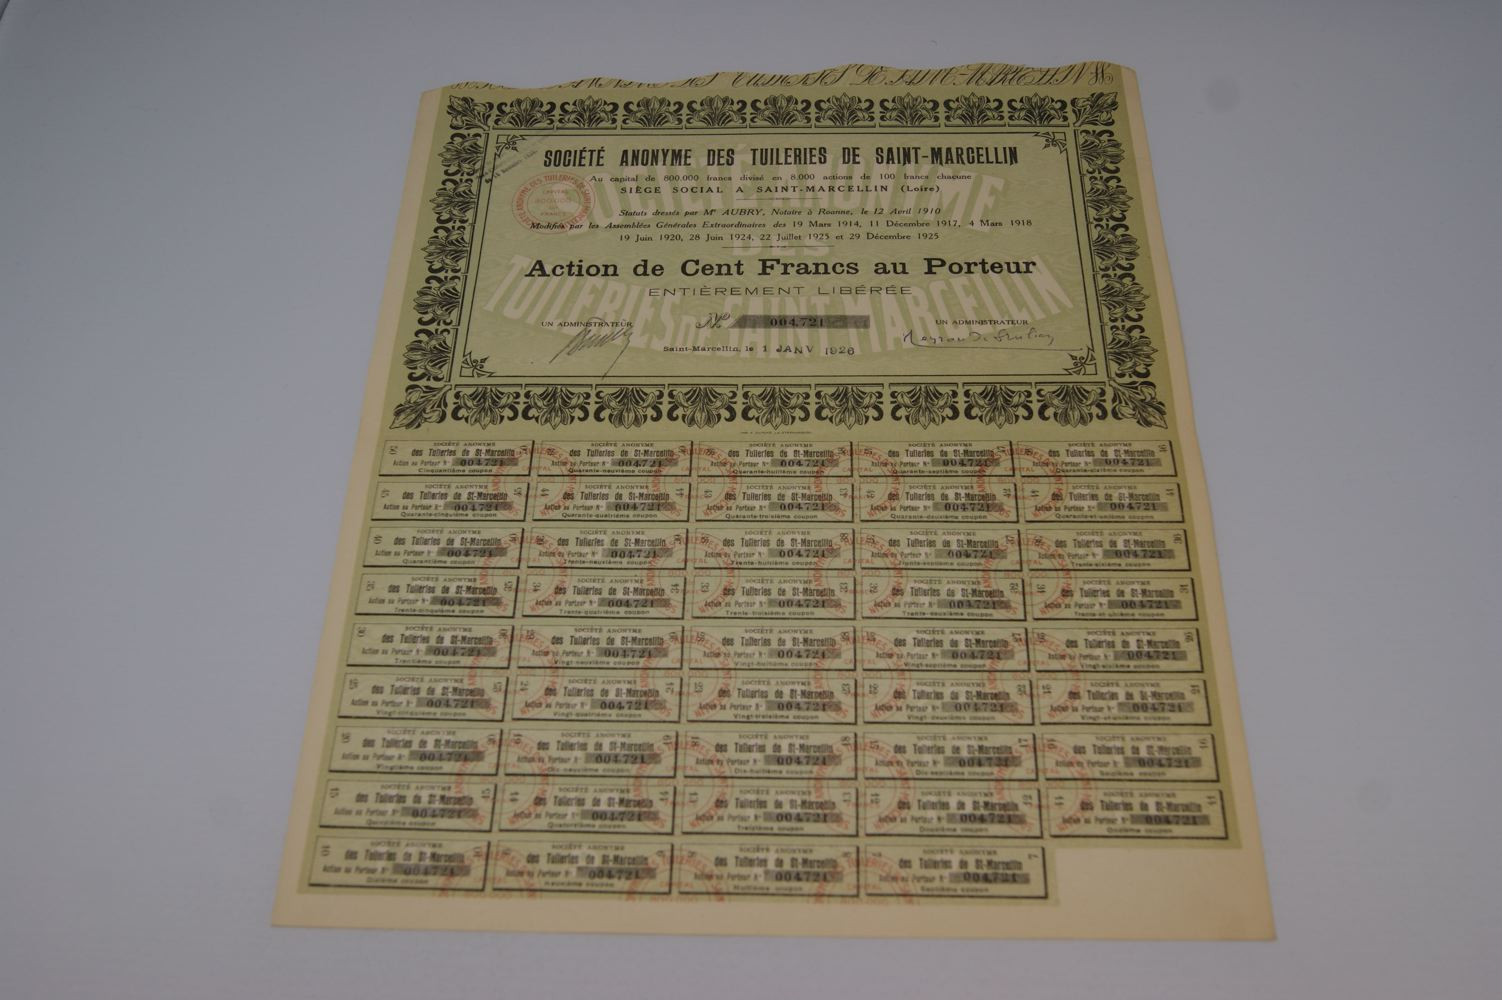 SOCIÉTÉ ANONYME DES TUILERIES DE SAINT-MARCELLIN
Au capital de 800.000 francs divisé en 8.000 actions de 100 francs chacune
SIÈGE SOCIAL A SAINT-MARCELLIN (Loire)
Statuts dressés par Mᵉ AUBRY, Notaire à Roanne, le 12 Avril 1910
Modifiés par les Assemblées Générales Extraordinaires des 19 Mars 1914, 11 Décembre 1917, 4 Mars 1918
19 Juin 1920, 28 Juin 1924, 22 Juillet 1925 et 29 Décembre 1925
Action de Cent Francs au Porteur
ENTIÈREMENT LIBÉRÉE
UN ADMINISTRATEUR Nº 004.721 UN ADMINISTRATEUR
Saint-Marcellin, le 1 JANV 1926
SOCIÉTÉ ANONYME SOCIÉTÉ ANONYME SOCIÉTÉ ANONYME SOCIÉTÉ ANONYME SOCIÉTÉ ANONYME
des Tuileries de St-Marcellin des Tuileries de St-Marcellin des Tuileries de St-Marcellin des Tuileries de St-Marcellin des Tuileries de St-Marcellin
Action au Porteur Nº 004.721 Action au Porteur Nº 004.721 Action au Porteur Nº 004.721 Action au Porteur Nº 004.721 Action au Porteur Nº 004.721
Cinquantième coupon Quarante-neuvième coupon Quarante-huitième coupon Quarante-septième coupon Quarante-sixième coupon
SOCIÉTÉ ANONYME SOCIÉTÉ ANONYME SOCIÉTÉ ANONYME SOCIÉTÉ ANONYME SOCIÉTÉ ANONYME
des Tuileries de St-Marcellin des Tuileries de St-Marcellin des Tuileries de St-Marcellin des Tuileries de St-Marcellin des Tuileries de St-Marcellin
Action au Porteur Nº 004.721 Action au Porteur Nº 004.721 Action au Porteur Nº 004.721 Action au Porteur Nº 004.721 Action au Porteur Nº 004.721
Quarante-cinquième coupon Quarante-quatrième coupon Quarante-troisième coupon Quarante-deuxième coupon Quarante-et-unième coupon
SOCIÉTÉ ANONYME SOCIÉTÉ ANONYME SOCIÉTÉ ANONYME SOCIÉTÉ ANONYME SOCIÉTÉ ANONYME
des Tuileries de St-Marcellin des Tuileries de St-Marcellin des Tuileries de St-Marcellin des Tuileries de St-Marcellin des Tuileries de St-Marcellin
Action au Porteur Nº 004.721 Action au Porteur Nº 004.721 Action au Porteur Nº 004.721 Action au Porteur Nº 004.721 Action au Porteur Nº 004.721
Quarantième coupon Trente-neuvième coupon Trente-huitième coupon Trente-septième coupon Trente-sixième coupon
SOCIÉTÉ ANONYME SOCIÉTÉ ANONYME SOCIÉTÉ ANONYME SOCIÉTÉ ANONYME SOCIÉTÉ ANONYME
des Tuileries de St-Marcellin des Tuileries de St-Marcellin des Tuileries de St-Marcellin des Tuileries de St-Marcellin des Tuileries de St-Marcellin
Action au Porteur Nº 004.721 Action au Porteur Nº 004.721 Action au Porteur Nº 004.721 Action au Porteur Nº 004.721 Action au Porteur Nº 004.721
Trente-cinquième coupon Trente-quatrième coupon Trente-troisième coupon Trente-deuxième coupon Trente-et-unième coupon
SOCIÉTÉ ANONYME SOCIÉTÉ ANONYME SOCIÉTÉ ANONYME SOCIÉTÉ ANONYME SOCIÉTÉ ANONYME
des Tuileries de St-Marcellin des Tuileries de St-Marcellin des Tuileries de St-Marcellin des Tuileries de St-Marcellin des Tuileries de St-Marcellin
Action au Porteur Nº 004.721 Action au Porteur Nº 004.721 Action au Porteur Nº 004.721 Action au Porteur Nº 004.721 Action au Porteur Nº 004.721
Trentième coupon Vingt-neuvième coupon Vingt-huitième coupon Vingt-septième coupon Vingt-sixième coupon
SOCIÉTÉ ANONYME SOCIÉTÉ ANONYME SOCIÉTÉ ANONYME SOCIÉTÉ ANONYME SOCIÉTÉ ANONYME
des Tuileries de St-Marcellin des Tuileries de St-Marcellin des Tuileries de St-Marcellin des Tuileries de St-Marcellin des Tuileries de St-Marcellin
Action au Porteur Nº 004.721 Action au Porteur Nº 004.721 Action au Porteur Nº 004.721 Action au Porteur Nº 004.721 Action au Porteur Nº 004.721
Vingt-cinquième coupon Vingt-quatrième coupon Vingt-troisième coupon Vingt-deuxième coupon Vingt-et-unième coupon
SOCIÉTÉ ANONYME SOCIÉTÉ ANONYME SOCIÉTÉ ANONYME SOCIÉTÉ ANONYME SOCIÉTÉ ANONYME
des Tuileries de St-Marcellin des Tuileries de St-Marcellin des Tuileries de St-Marcellin des Tuileries de St-Marcellin des Tuileries de St-Marcellin
Action au Porteur Nº 004.721 Action au Porteur Nº 004.721 Action au Porteur Nº 004.721 Action au Porteur Nº 004.721 Action au Porteur Nº 004.721
Vingtième coupon Dix-neuvième coupon Dix-huitième coupon Dix-septième coupon Seizième coupon
SOCIÉTÉ ANONYME SOCIÉTÉ ANONYME SOCIÉTÉ ANONYME SOCIÉTÉ ANONYME SOCIÉTÉ ANONYME
des Tuileries de St-Marcellin des Tuileries de St-Marcellin des Tuileries de St-Marcellin des Tuileries de St-Marcellin des Tuileries de St-Marcellin
Action au Porteur Nº 004.721 Action au Porteur Nº 004.721 Action au Porteur Nº 004.721 Action au Porteur Nº 004.721 Action au Porteur Nº 004.721
Quinzième coupon Quatorzième coupon Treizième coupon Douzième coupon Onzième coupon
SOCIÉTÉ ANONYME SOCIÉTÉ ANONYME SOCIÉTÉ ANONYME SOCIÉTÉ ANONYME
des Tuileries de St-Marcellin des Tuileries de St-Marcellin des Tuileries de St-Marcellin des Tuileries de St-Marcellin
Action au Porteur Nº 004.721 Action au Porteur Nº 004.721 Action au Porteur Nº 004.721 Action au Porteur Nº 004.721
Dixième coupon Neuvième coupon Huitième coupon Septième coupon